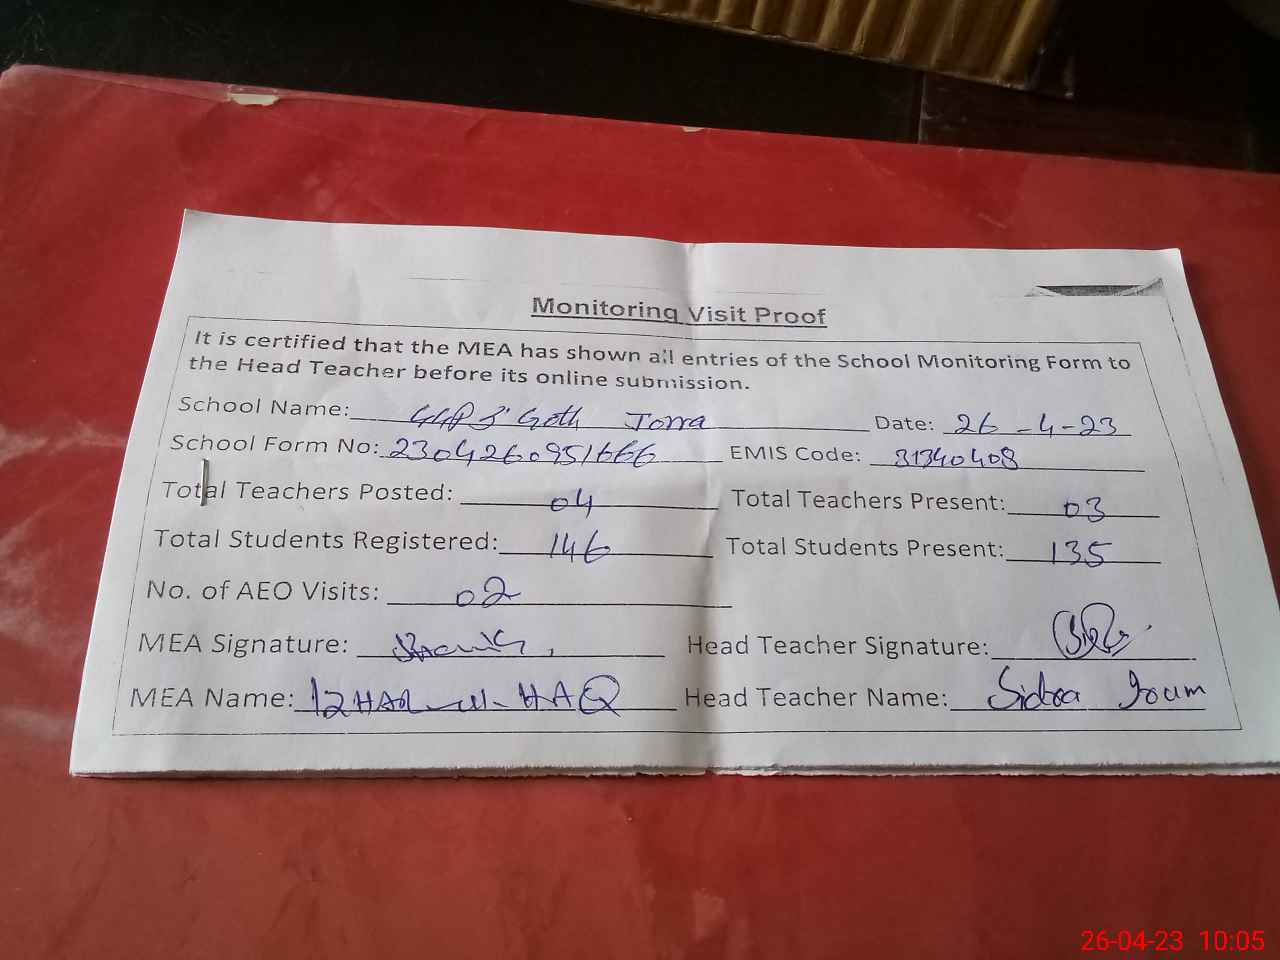 Monitoring Visit Proof
It is certified that the MEA has shown all entries of the School Monitoring Form to
the Head Teacher before its online submission.
School Name: GGPS Goth Jorra Date: 26-4-23
School Form No: 2304260951666 EMIS Code: 31340408
Total Teachers Posted: 04 Total Teachers Present: 03
Total Students Registered: 146 Total Students Present: 135
No. of AEO Visits: 02
MEA Signature: Head Teacher Signature:
MEA Name: IZHAR-ul-HAQ Head Teacher Name: Sidra Iram
26-04-23 10:05